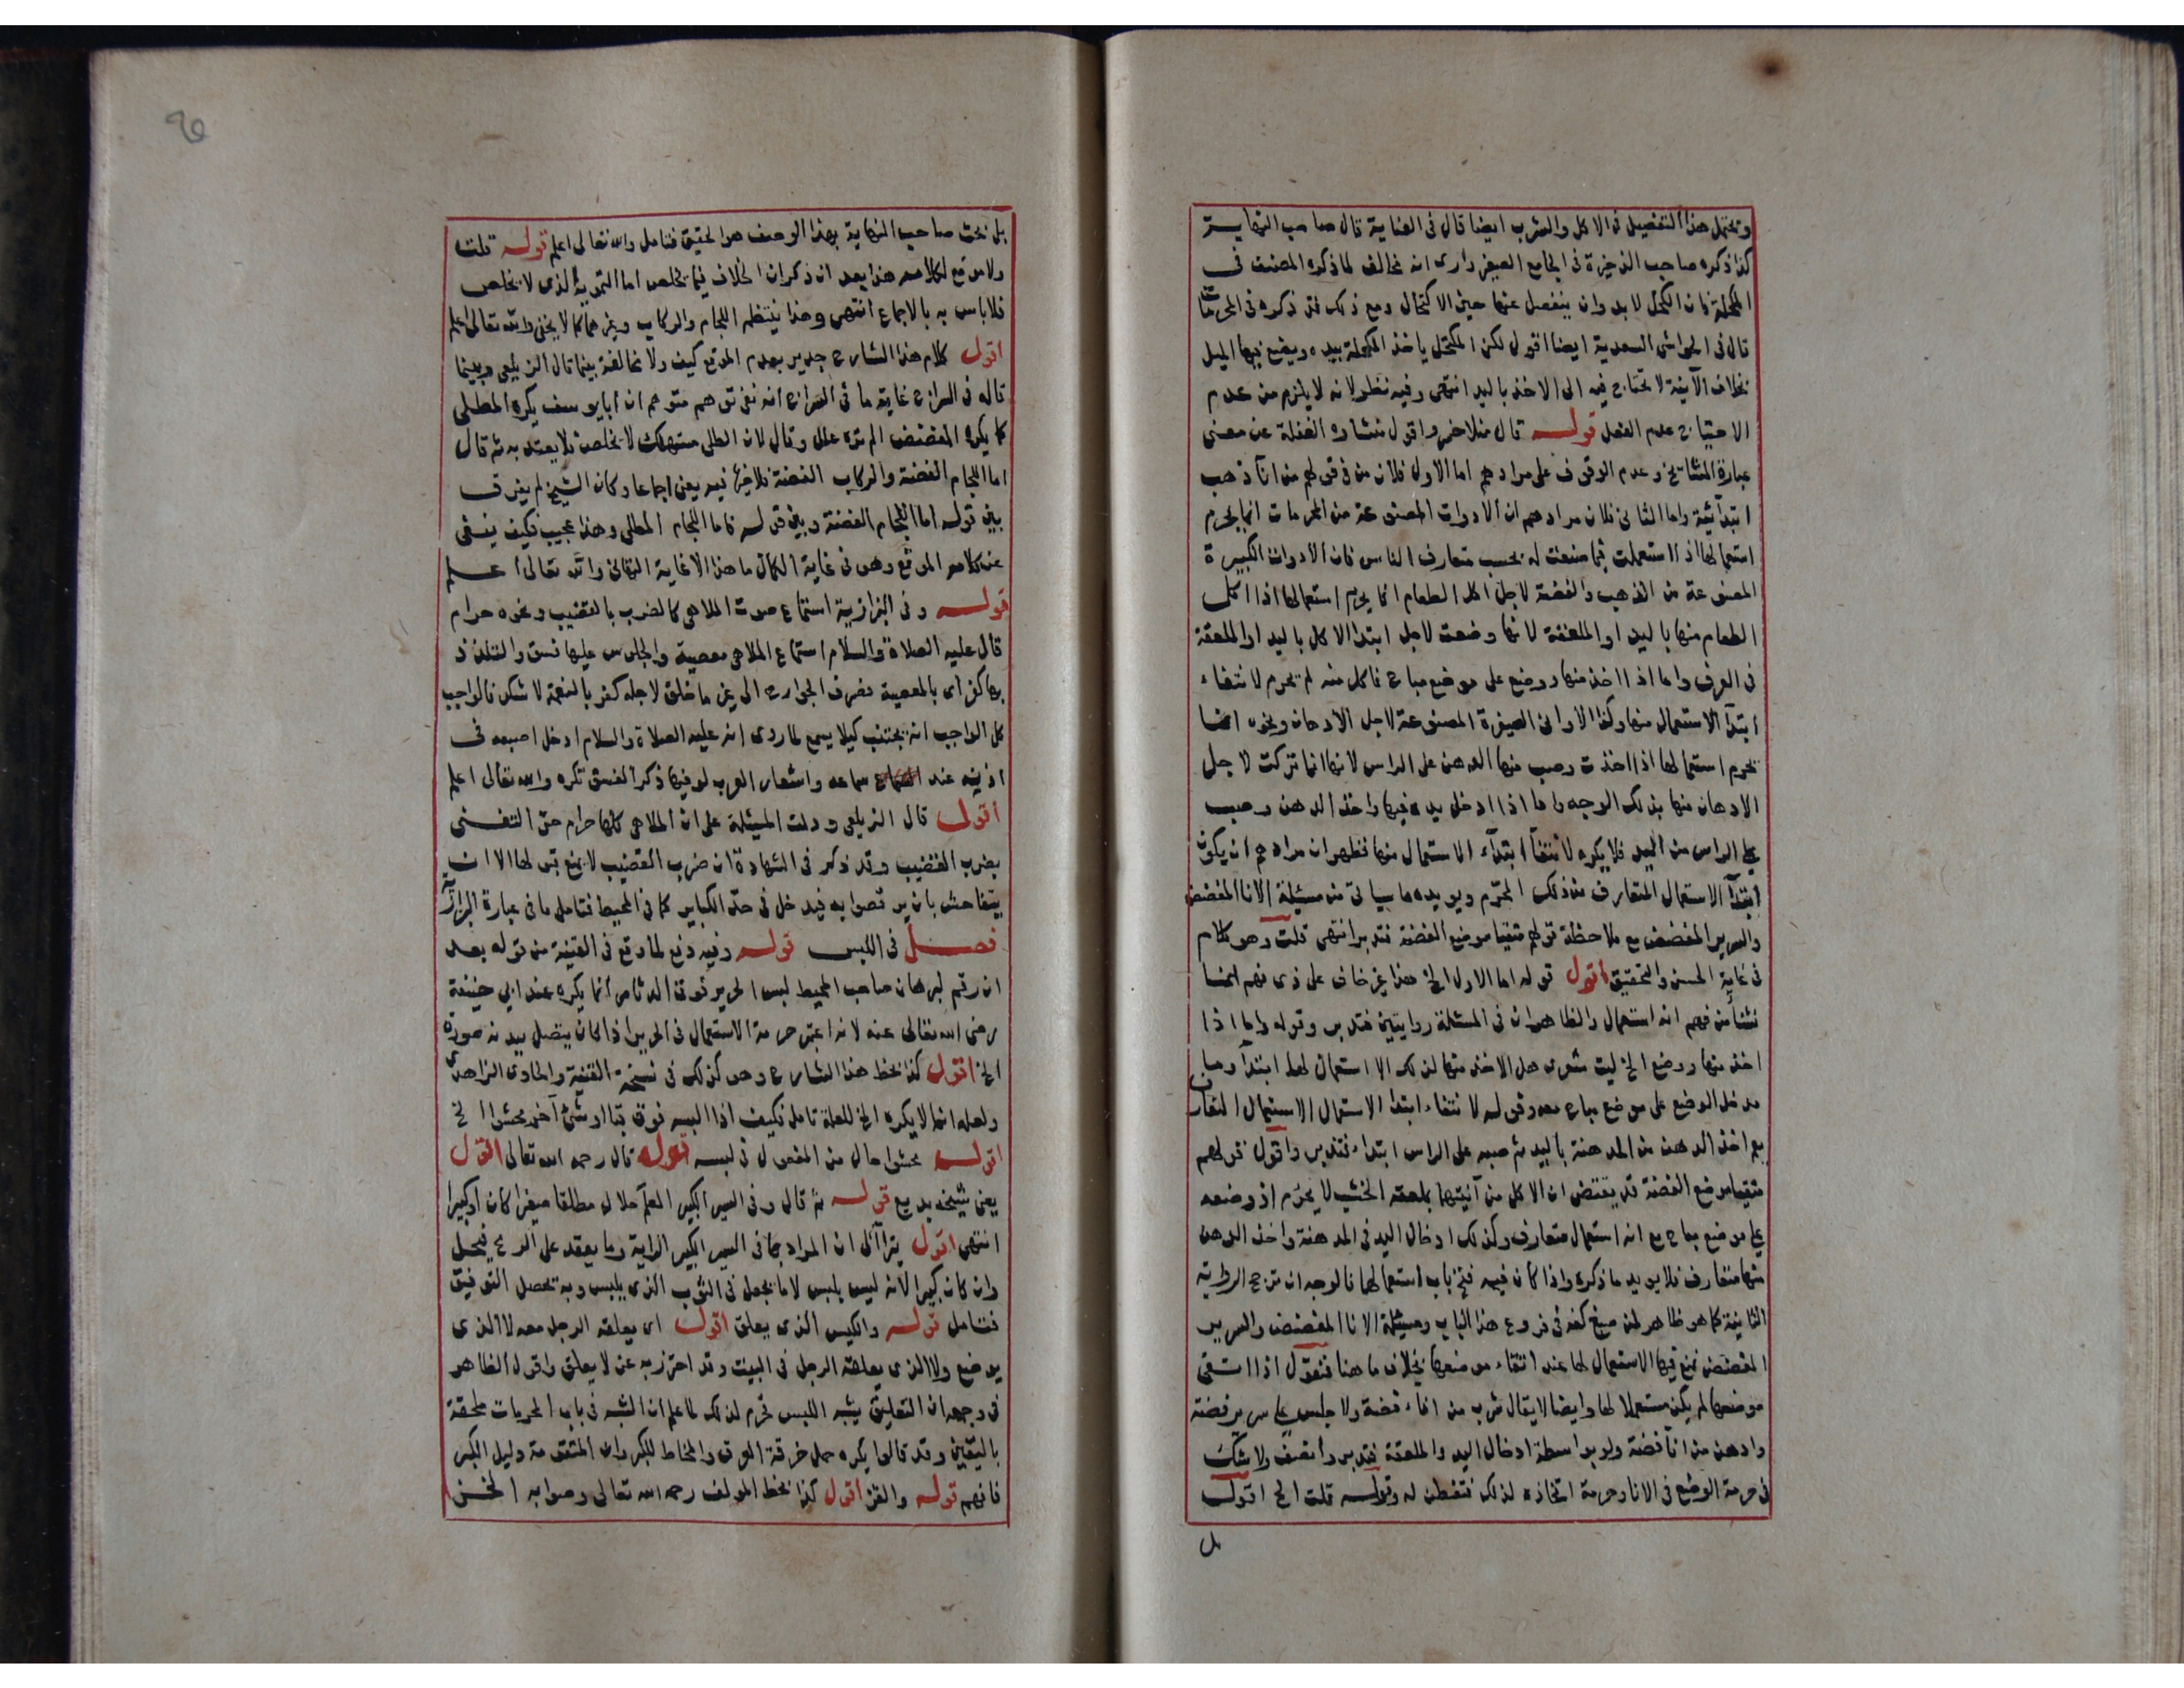 ويحتمل هذا التفصيل في الاكل والشرب ايضا قال في العناية قال صاحب النهاية
كذا ذكره صاحب الذخيرة في الجامع الصغير وارى انه مخالف لما ذكره المصنف في
المكحلة فان الكحل لا بد وان ينفصل عنها حين الاكتحال ومع ذلك فقد ذكره في المحرمات
قال في الحواشي السعدية ايضا اقول لكن المكتحل ياخذ المكحلة بيده ويضع فيها الميل
بخلاف الآنية لا تحتاج فيه الى الاخذ باليد انتهى وفيه نظر لانه لا يلزم من عدم
الاحتياج عدم الفعل قوله قال منلاخسرو اقول منشاوه الغفلة عن معنى
عبارة المشائخ وعدم الوقوف على مرادهم اما الاول فلان من في قولهم من انآ ذهب
ابتدآئية واما الثاني فلان مرادهم ان الادوات المصنوعة من المحرمات انما يحرم
استعمالها اذا استعملت فيما صنعت له بحسب متعارف الناس فان الادوات الكبيرة
المصنوعة من الذهب والفضة لاجل اكل الطعام انما يحرم استعمالها اذا اكل
الطعام منها باليد او الملعقة لانها وضعت لاجل ابتدا الاكل باليد او الملعقة
في العرف واما اذا اخذ منها ووضع على موضع مباح فاكل منه لم يحرم لانتفاء
ابتدآ الاستعمال منها وكذا الاواني الصغيرة المصنوعة لاجل الادهان ونحوه انما
يحرم استعمالها اذا اخذت وصب منها الدهن على الراس لانها انما تركت لاجل
الادهان منها بذلك الوجه واما اذا ادخل يده فيها واخذ الدهن وصب
على الراس من اليد فلا يكره لانتفآ ابتدآء الاستعمال منها فظهر ان مرادهم ان يكون
ابتدآ الاستعمال المتعارف من ذلك المحرم ويويده ما سياتي من مسئلة الانا المفضض
والسرير المفضض مع ملاحظة قولهم متقيا موضع الفضة فتدبر انتهى قلت وهو كلام
في غاية الحسن والتحقيق اقول قوله اما الاول الخ هذا غير خاف على ذي فهم انما
نشأ من فهم انه استعمال والظاهر ان في المسئلة روايتين فتدبر وقوله واما اذا
اخذ منها ووضع الخ ليت شعري هل الاخذ منها لذلك الا استعمال لها ابتدآ وما
مدخل الوضع على موضع مباح معه وقوله لانتفاء ابتدا الاستعمال الاستعمال المتعارف
مع اخذ الدهن من المدهنة باليد ثم صبه على الراس ابتداء فتدبر واقول قولهم
متقيا موضع الفضة قد يقتضي ان الاكل من آنيتها بملعقة الخشب لا يحرم اذ وضعه
على موضع مباح مع انه استعمال متعارف وكذلك ادخال اليد في المدهنة واخذ الدهن
منها متعارف فلا يويد ما ذكره واذا كان فيه فتح باب استعمالها فالوجه ان ترجح الرواية
الثانية كما هو ظاهر لمن صبغ كفه في فروع هذا الباب ومسئلة الانا المفضض والسرير
المفضض نمنع فيها الاستعمال لها عند اتقاء موضعها بخلاف ما هنا فنقول اذا اتقى
موضعها لم يكن مستعملا لها وايضا لا يقال شرب من اناء فضة ولا جلس على سرير فضة
وادهن من انآ فضة ولو بواسطة ادخال اليد والملعقة فتدبر وأنصف ولا شك
في حرمة الوضع في الانا وحرمة اتخاذه لذلك فتفطن له وقوله قلت الخ اقول
بل
بل بحث صاحب النهاية بهذا الوصف هو الحقيق فتامل والله تعالى اعلم قوله قلت
ولا موقع لكلامه هذا بعد ان ذكر ان الخلاف فيما يخلص اما التمويه الذي لا يخلص
فلا باس به بالاجماع انتهى وهذا ينتظم اللجام والركاب وغيرهما كما لا يخفى والله تعالى اعلم
اقول كلام هذا الشارح جدير بعدم الموقع كيف ولا مخالفة بينما قال الزيلعي وبينما
قاله في السراج غاية ما في السراج انه نفى توهم متوهم ان ابا يوسف يكره المطلي
كما يكره المفضض الم تره علل وقال لان الطلي مستهلك لا يخلص فلا يعتد به ثم قال
اما اللجام الفضة والركاب الفضة فلا خير فيه يعني اجماعا وكان الشيخ لم يفرق
بين قوله اما اللجام الفضة وبين قوله فاما اللجام المطلي وهذا عجيب فكيف ينفي
عن كلامه الموقع وهو في غاية الكمال ما هذا الا غاية التهاني والله تعالى اعلم
قوله وفي البزازية استماع صوت الملاهي كالضرب بالقضيب ونحوه حرام
قال عليه الصلاة والسلام استماع الملاهي معصية والجلوس عليها فسق والتلذذ
بها كفر اي بالمعصية فصرف الجوارح الى غير ما خلق لاجله كفر بالنعمة لا شكر فالواجب
كل الواجب ان يجتنب كيلا يسمع لما روى انه عليه الصلاة والسلام ادخل اصبعه في
اذنيه عند سماعه واشعار العرب لو فيها ذكر الفسق تكره والله تعالى اعلم
اقول قال الزيلعي ودلت المسئلة على ان الملاهي كلها حرام حتى التغني
بضرب القضيب وقد ذكر في الشهادة ان ضرب القضيب لا يمنع قبولها الا ان
يتفاحش بان يرقصوا به فيدخل في حد الكباير كما في المحيط فتامل ما في عبارة البزازي
فصل في اللبس قوله وفيه دفع لما وقع في القنية من قوله بعد
ان رقم لبرهان صاحب المحيط لبس الحرير فوق الدثار انما يكره عند ابي حنيفة
رضي الله تعالى عنه لانه اعتبر حرمة الاستعمال في الحرير اذا كان يتصل ببدنه صورة
الخ اقول كذا بخط هذا الشارح وهو كذلك في نسخة القنية والحاوي الزاهدي
ولعله انما لا يكره الخ للعلة تامل فكيف اذا لبسه فوق قبا او شئ آخر محشوا الخ
اقوله محشوا حال من المفعول في لبسه قوله قال رحمه الله تعالى اقول
يعني شيخه بديع قوله ثم قال وفي السير الكبير العلم حلال مطلقا صغيرا كان او كبيرا
انتهى اقول يترآاى ان المراد بما في السير الكبير الراية وما يعقد على الرمح فيحل
وان كان كبيرا لانه ليس بلبس لا ما يجعل في الثوب الذي يلبس وبه تحصل التوفيق
فتامل قوله والكيس الذي يعلق اقول اي يعلقه الرجل معه لا الذي
يوضع ولا الذي يعلقه الرجل في البيت وقد احترز به عن لا يعلق واقول الظاهر
في وجهه ان التعليق يشبه اللبس فحرم لذلك لما علم ان الشبه في باب الحرمات ملحقة
باليقين وقد قالوا يكره حمل خرقة العرق والمخاط للكبر وان المتقومة دليل الكبر
فافهم قوله والقز اقول كذا بخط المولف رحمه الله تعالى وصوابه الخز